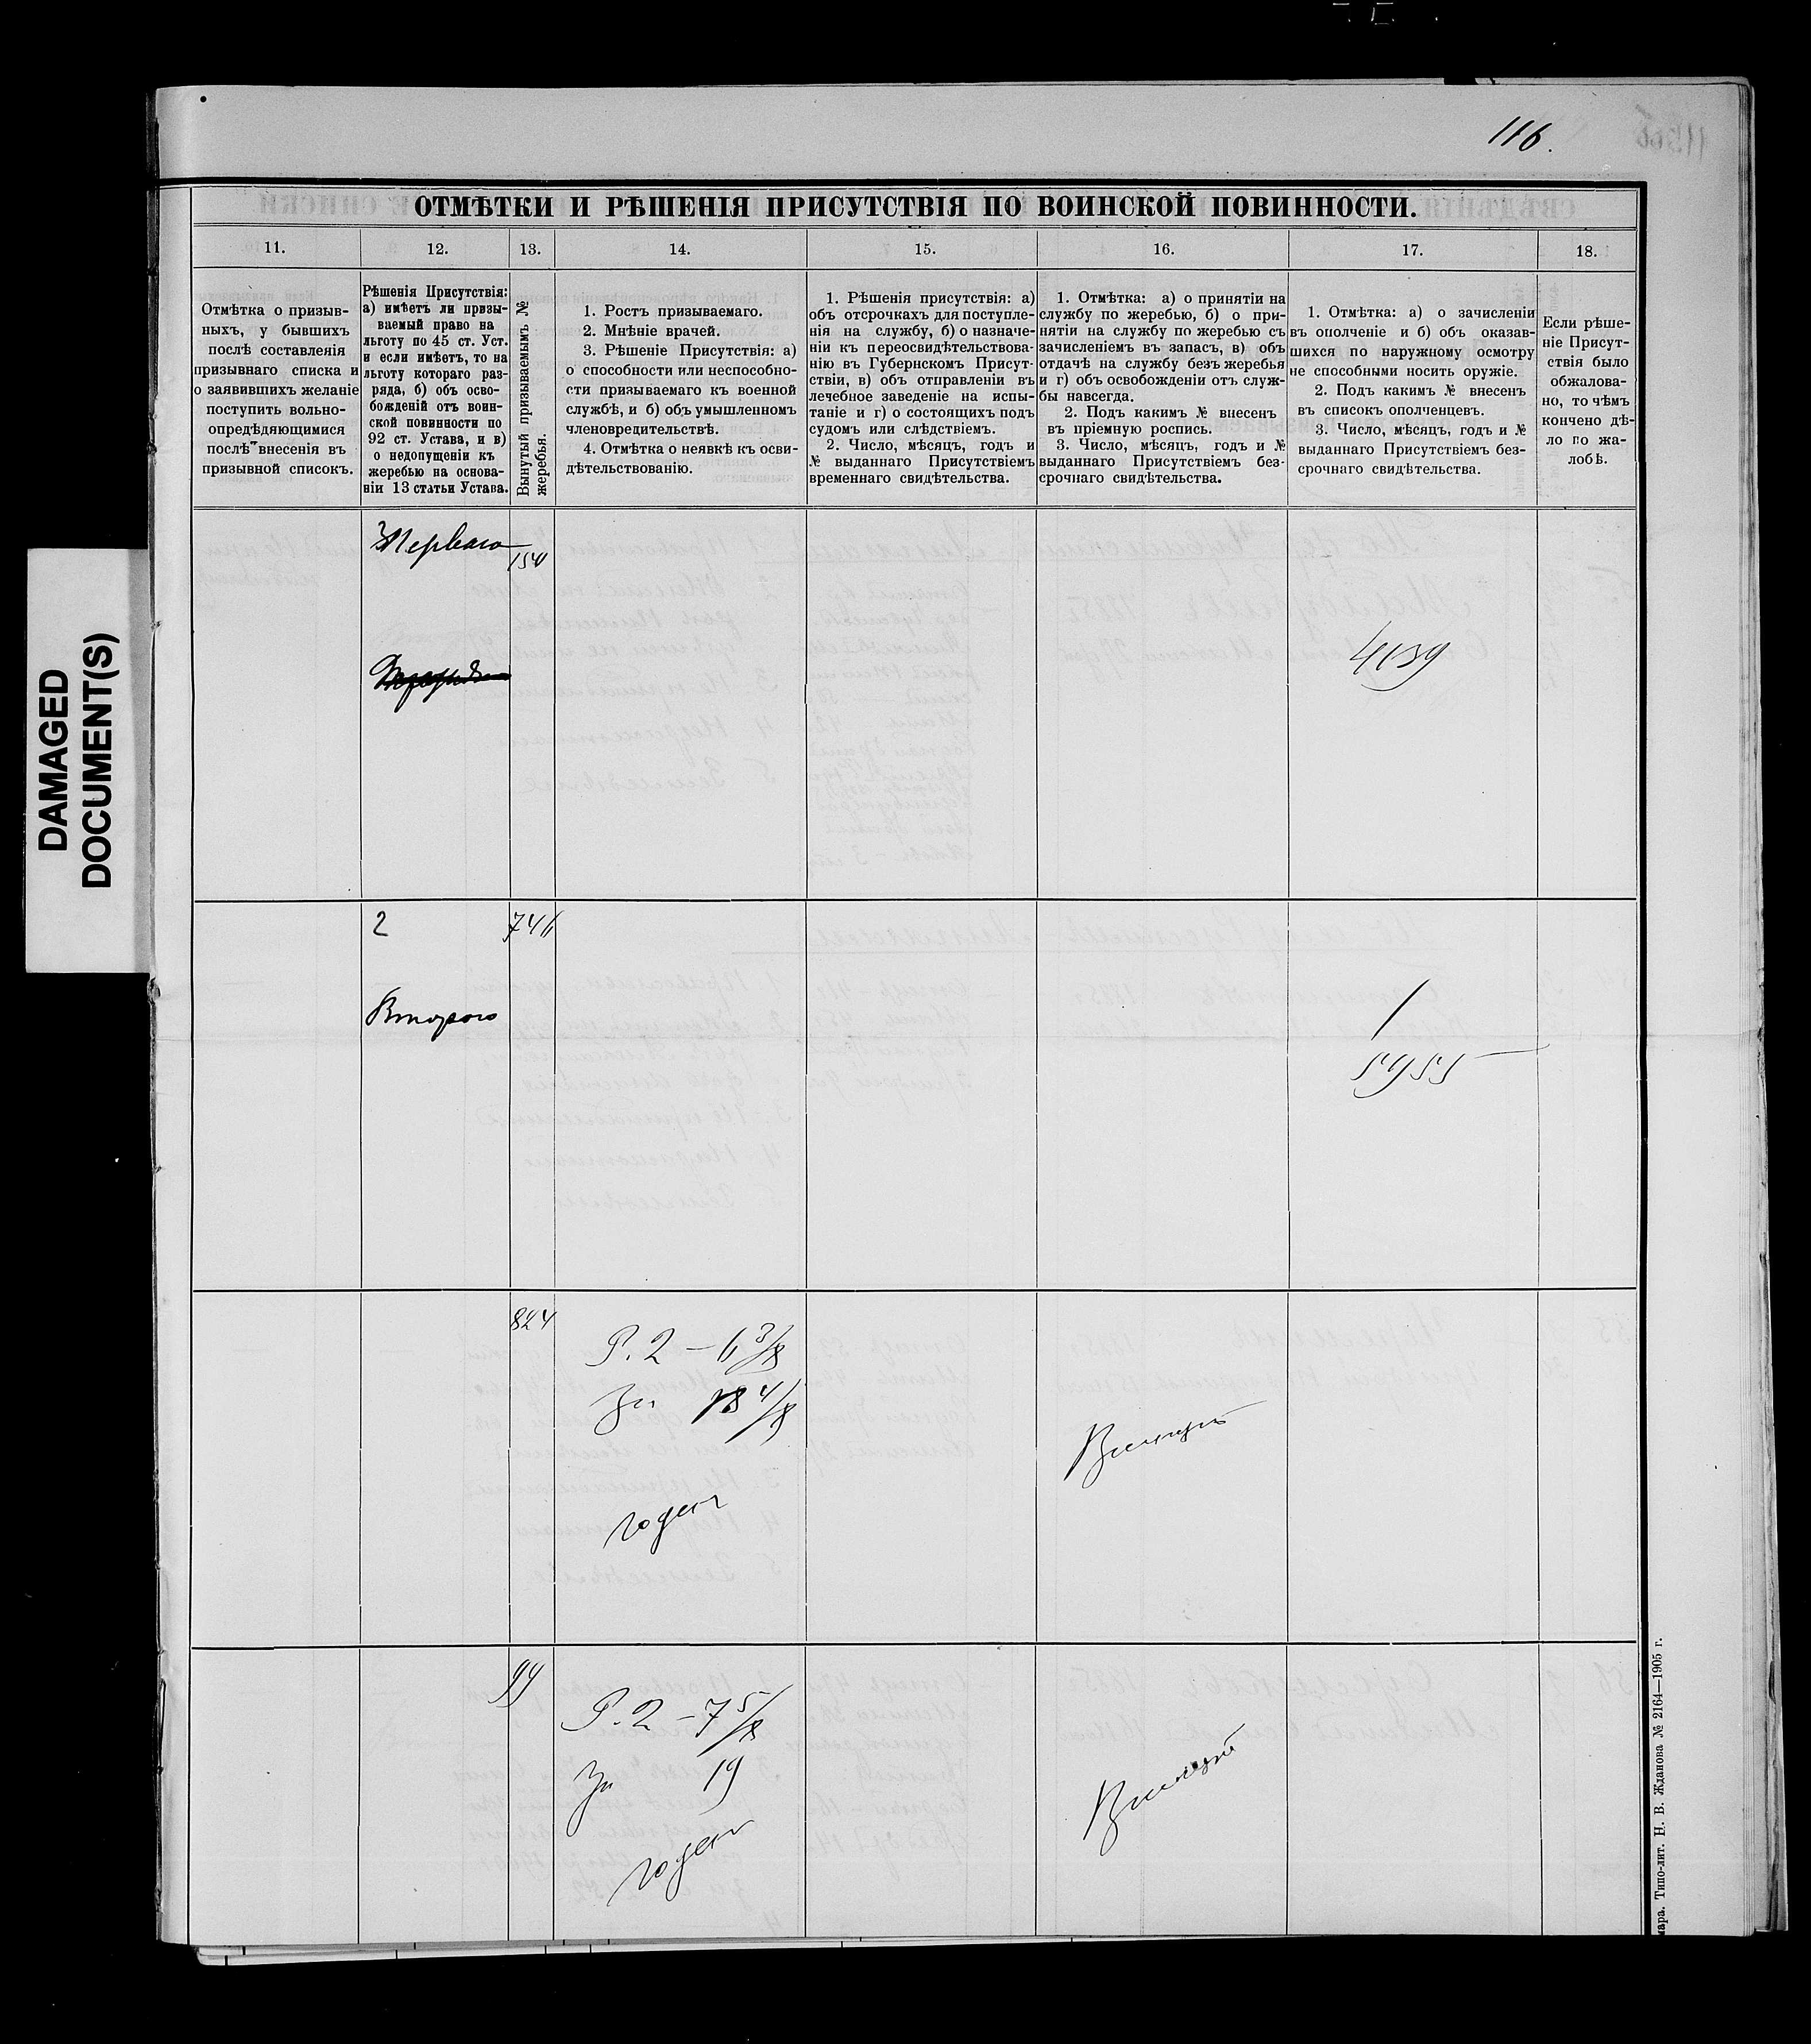 116.
DAMAGED
DOCUMENT(S)
ОТМѢТКИ И РѢШЕНІЯ ПРИСУТСТВІЯ ПО ВОИНСКОЙ ПОВИННОСТИ.
11.
12.
13.
14.
15.
16.
17.
18.
Отмѣтка о призыв-
ныхъ, у бывшихъ
послѣ составленія
призывнаго списка и
о заявившихъ желаніе
поступить вольно-
опредѣляющимися
послѣ внесенія въ
призывной списокъ.
Рѣшенія Присутствія:
а) имѣетъ ли призы-
ваемый право на
льготу по 45 ст. Уст.
и если имѣетъ, то на
льготу котораго раз-
ряда, б) объ осво-
божденій отъ воин-
ской повинности по
92 ст. Устава, и в)
о недопущеніи къ
жеребью на основа-
ніи 13 статьи Устава.
Вынутый призываемымъ №
жеребья.
1. Ростъ призываемаго.
2. Мнѣніе врачей.
3. Рѣшеніе Присутствія: а)
о способности или неспособно-
сти призываемаго къ военной
службѣ, и б) объ умышленномъ
членовредительствѣ.
4. Отмѣтка о неявкѣ къ осви-
дѣтельствованію.
1. Рѣшенія присутствія: а)
объ отсрочкахъ для поступле-
нія на службу, б) о назначе-
ніи къ переосвидѣтельствова-
нію въ Губернскомъ Присут-
ствіи, в) объ отправленіи въ
лечебное заведеніе на испы-
таніе и г) о состоящихъ подъ
судомъ или слѣдствіемъ.
2. Число, мѣсяцъ, годъ и
№ выданнаго Присутствіемъ
временнаго свидѣтельства.
1. Отмѣтка: а) о принятіи на
службу по жеребью, б) о при-
нятіи на службу по жеребью съ
зачисленіемъ въ запасъ, в) объ
отдачѣ на службу безъ жеребья
и г) объ освобожденіи отъ служ-
бы навсегда.
2. Подъ какимъ № внесенъ
въ пріемную роспись.
3. Число, мѣсяцъ, годъ и №
выданнаго Присутствіемъ без-
срочнаго свидѣтельства.
1. Отмѣтка: а) о зачисленіи
въ ополченіе и б) объ оказав-
шихся по наружному осмотру
не способными носить оружіе.
2. Подъ какимъ № внесенъ
въ списокъ ополченцевъ.
3. Число, мѣсяцъ, годъ и №
выданнаго Присутствіемъ без-
срочнаго свидѣтельства.
Если рѣше-
ніе Присут-
ствія было
обжалова-
но, то чѣмъ
кончено дѣ-
ло по жа-
лобѣ.
Перваго
2
Второго
746
824
Р. 2 – 6 3/8
18 4/8
годен
99
Р. 2 – 7 5/8
19
годен
мара. Типо-лит. Н. В. Жданова № 2164—1905 г.